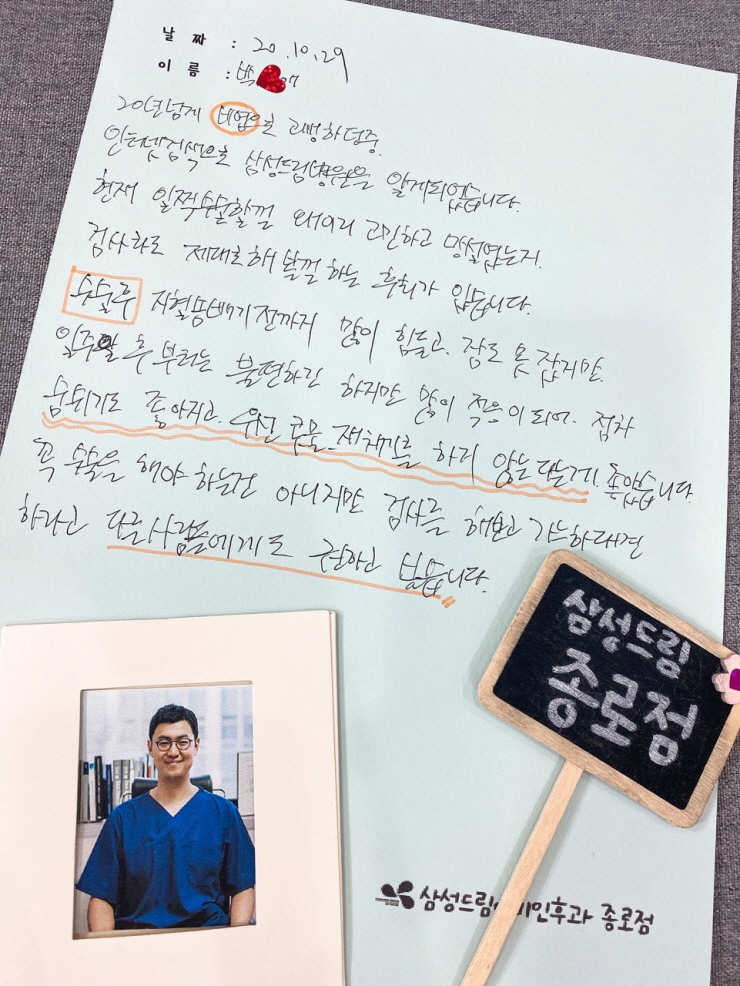 날 짜 : 20.10.29
이 름 : 박
20년넘게 비염으로 고생하던중.
인터넷검색으로 삼성드림병원을 알게되었습니다.
현재 일찍수술할껄 왜이리 고민하고 망설였는지.
검사라도 제대로해볼껄 하는 후회가 있습니다.
수술후 지혈솜빼기전까지 많이 힘들고. 잠도 못 잤지만.
일주일 후 부터는 불편하긴 하지만 많이 적응이 되어. 점차
숨쉬기도 좋아지고. 우선 콧물.재채기를 하지 않는다는게. 좋았습니다.
꼭 수술을 해야 하는건 아니지만 검사를 해보고 가능하다면
하라고 다른사람들에게도 권하고 싶습니다.
삼성드림
종로점
삼성드림 비인후과 종로점